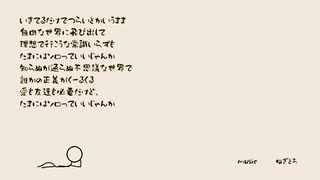 いきてるだけでつらいとかいうまま
自由なせ界に飛び出して
理想で行こうな常識いらずも
たまにはソロっていいじゃんか
知らぬが通らぬ不思議なせ界で
誰かの正義がぐーるぐる
愛も友達も必要だけど、
たまにはソロっていいじゃんか
music ねぎとろ